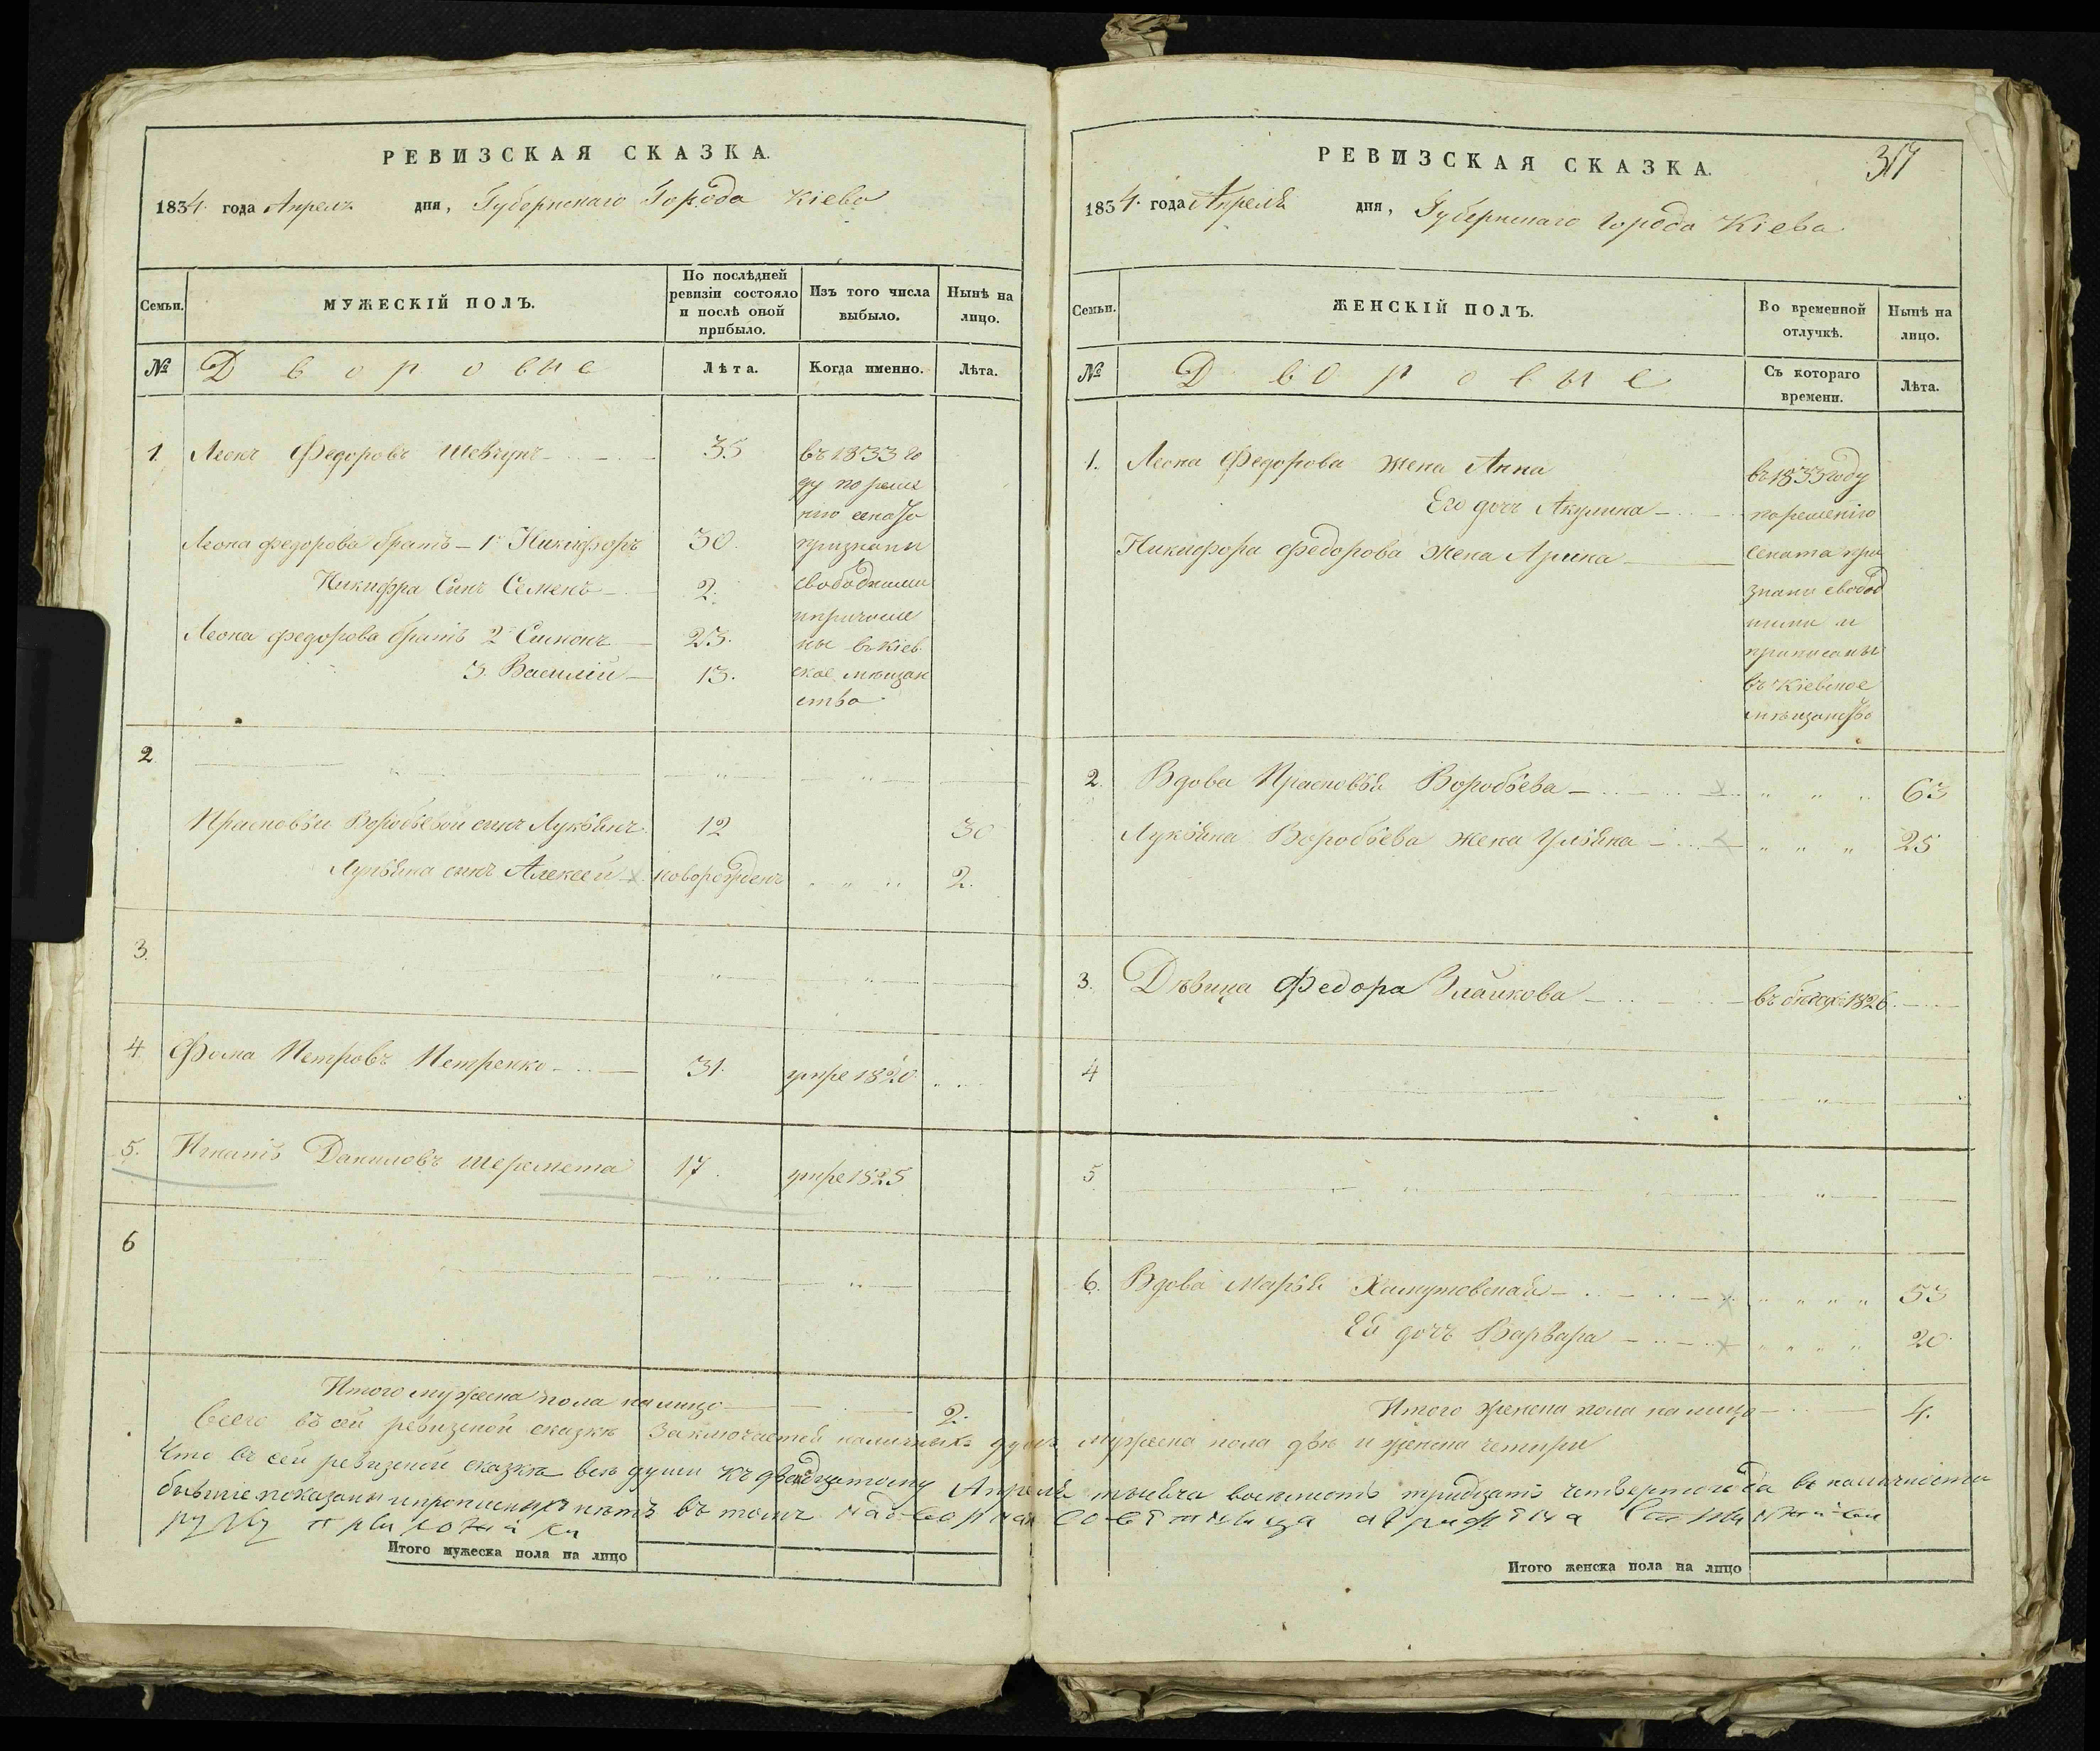 РЕВИЗСКАЯ СКАЗКА.
1834. года Апреля дня, Губернскаго Города Кіева
Семьи.
МУЖЕСКІЙ ПОЛЪ.
По послѣдней
ревизіи состояло
и послѣ оной
прибыло.
Изъ того числа
выбыло.
Нынѣ на
лицо.
№
Дворовые
Лѣта.
Когда именно.
Лѣта.
1. Леонъ Федоровъ Шевчунъ 35 въ 1833 го
ду по реше
нію сената
Леона федорова братъ 1й Никифоръ 30. признаны
Никифра Сынъ Семенъ 2. свободными
и причисле
Леона федорова братъ 2й Симонъ 23. ны въ Кіев
3 Василій 13. ское мѣщан
ство
2
Прасковьи Воробьевой сынъ Лукьянъ 12 30
Лукьяна сынъ Алексей новорожденъ 2.
3.
4. Фома Петровъ Петренко 31. умре 1820
5. Игнатъ Даниловъ Шеремета 17. умре 1825
6
Итого мужеска пола налицо 2.
РЕВИЗСКАЯ СКАЗКА.
319
1834. года Апреля дня, Губернскаго Города Кіева
Семьи.
ЖЕНСКІЙ ПОЛЪ.
Во временной
отлучкѣ.
Нынѣ на
лицо.
№
Дворовые
Съ котораго
времени.
Лѣта.
1. Леона Федорова жена Анна въ 1833 году
Его дочь Акулина по решенію
Никифора Федорова жена Арина сената при
знаны свобод
ными и
приписаны
въ Кіевское
мѣщанство
2. Вдова Прасковья Воробьева 63
Лукьяна Воробьева жена Ульяна 25
3. Дѣвица Федора въ бегахъ 1826
4
5
6. Вдова Марья 53
Ея дочь Варвара 20
Итого женска пола на лицо 4.
Всего въ сей ревизской сказкѣ заключается наличныхъ душъ мужеска пола двѣ и женска четыри
Что въ сей ревизской сказкѣ всѣ души къ двадцатому Апреля тысяча восемьсотъ тридцать четвертого года въ наличности
бывшіе показаны и прописныхъ нѣтъ въ томъ надворная совѣтница
руку приложила
Итого мужеска пола на лицо
Итого женска пола на лицо